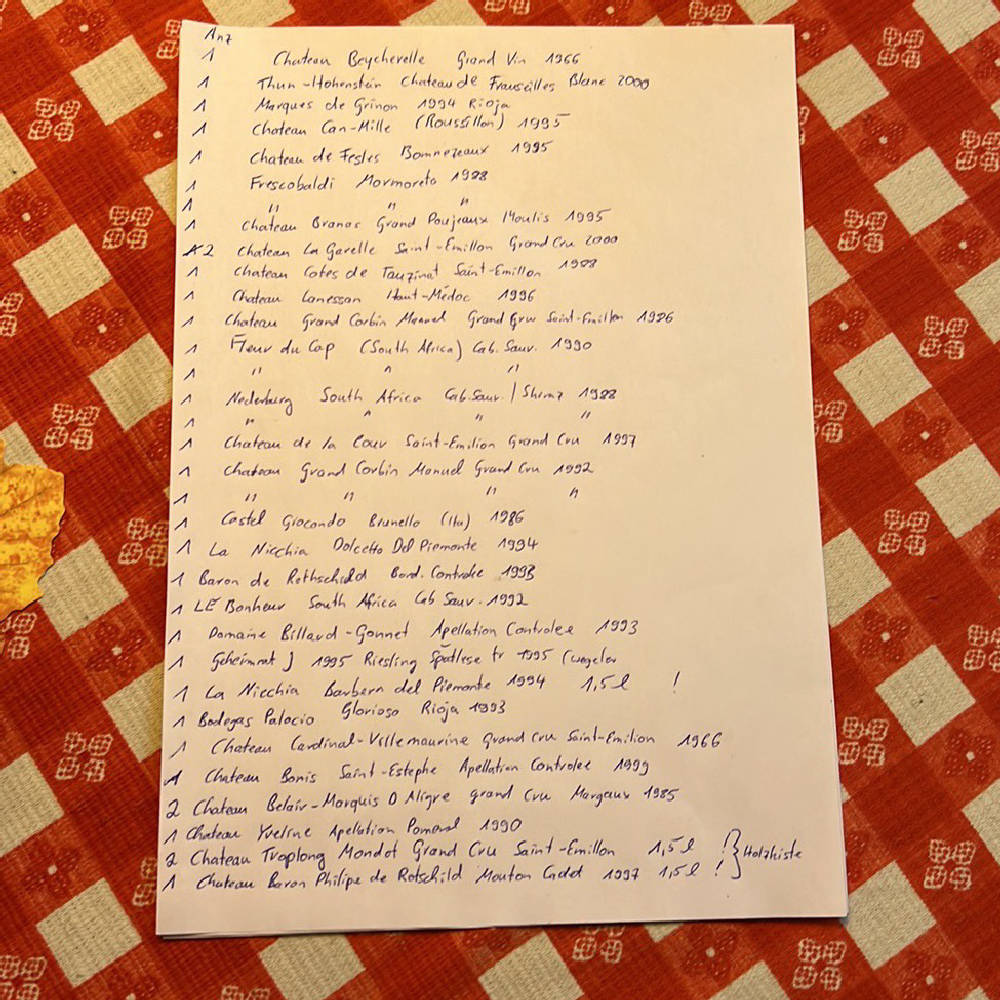 Anz
1 Chateau Beychevelle Grand Vin 1966
1 Thun-Hohenstein Chateau de Frauseilles Blanc 2000
1 Marques de Grinon 1994 Rioja
1 Chateau Can-Mille (Roussillon) 1995
1 Chateau de Fesles Bonnezeaux 1995
1 Frescobaldi Mormoreto 1988
1 " " "
1 Chateau Branas Grand Poujeaux Moulis 1995
2 Chateau La Garelle Saint-Emillon Grand Cru 2000
1 Chateau Cotes de Tauzinat Saint-Emillon 1988
1 Chateau Lanessan Haut-Médoc 1996
1 Chateau Grand Corbin Manuel Grand Gru Saint-Emillon 1986
1 Fleur du Cap (South Africa) Cab. Sauv. 1990
1 " " "
1 Nederburg South Africa Cab.Sauv. / Shiraz 1988
1 " " " "
1 Chateau de la Cour Saint-Emilion Grand Cru 1997
1 Chateau Grand Corbin Manuel Grand Cru 1992
1 " " " "
1 Castel Giocondo Brunello (Ita) 1986
1 La Nicchia Dolcetto Del Piemonte 1994
1 Baron de Rothschild Bord. Controlee 1993
1 LE Bonheur South Africa Cab Sauv. 1992
1 Domaine Billard-Gonnet Apellation Controlee 1993
1 Geheimrat J 1995 Riesling Spätlese tr 1995 (Wegeler
1 La Nicchia Barbera del Piemonte 1994 1,5 l !
1 Bodegas Palacio Glorioso Rioja 1993
1 Chateau Cardinal-Villemaurine Grand Cru Saint-Emilion 1966
1 Chateau Bonis Saint-Estephe Apellation Controlee 1999
2 Chateau Belair-Marquis D Aligre grand Cru Margaux 1985
1 Chateau Yveline Apellation Pomerol 1990
2 Chateau Troplong Mondot Grand Cru Saint-Emillon 1,5 l ! } Holzkiste
1 Chateau Baron Philipe de Rotschild Mouton Cadet 1997 1,5 l !